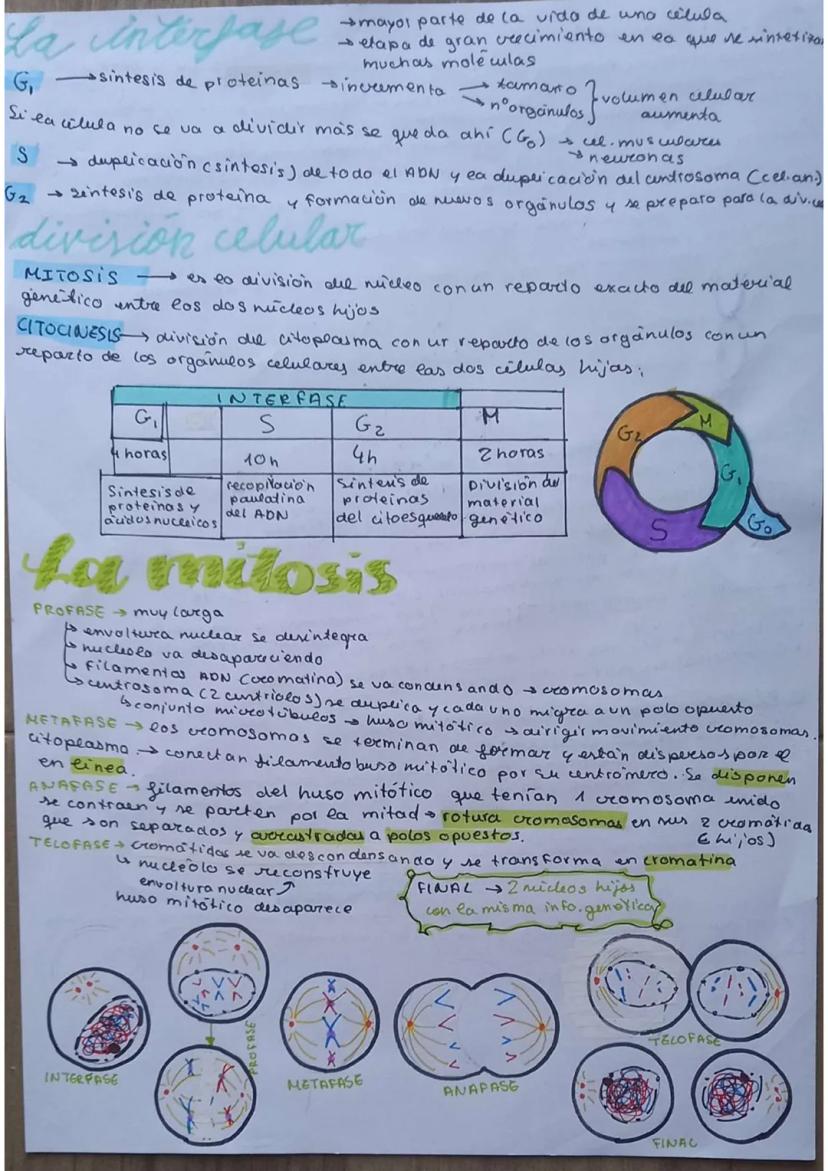 La interfase
→ mayor parte de la vida de una célula
→ etapa de gran crecimiento en la que se sintetizan
muchas moléculas
G₁ → síntesis de proteínas → incrementa → tamaño
→ nº orgánulos } volumen celular
aumenta
Si la célula no se va a dividir más se queda ahí (G₀) → cel. musculares
→ neuronas
S → duplicación (síntesis) de todo el ADN y la duplicación del centrosoma (cel.an.)
G₂ → síntesis de proteína y formación de nuevos orgánulos y se prepara para la div.
división celular
MITOSIS → es la división del núcleo con un reparto exacto del material
genético entre los dos núcleos hijos
CITOCINESIS → división del citoplasma con un reparto de los orgánulos con un
reparto de los orgánulos celulares entre las dos células hijas.
INTERFASE
G₁ S G₂ M
4 horas 10h 4h 2 horas
Síntesis de recopilación Síntesis de División del
proteínas y paulatina proteínas material
ácidos nucleicos del ADN del citoesqueleto genético
G₂ M G₁ S G₀
La mitosis
PROFASE → muy larga
↳ envoltura nuclear se desintegra
↳ nucleolo va desapareciendo
↳ filamentos ADN (cromatina) se va condensando → cromosomas
↳ centrosoma (2 centriolos) se duplica y cada uno migra a un polo opuesto
↳ conjunto microtúbulos → huso mitótico → dirigir movimiento cromosomas.
METAFASE → los cromosomas se terminan de formar y están dispersos por el
citoplasma → conectan filamento huso mitótico por su centrómero. Se disponen
en línea.
ANAFASE → filamentos del huso mitótico que tenían 1 cromosoma unido
se contraen y se parten por la mitad → rotura cromosomas en sus 2 cromátida
que son separados y arrastradas a polos opuestos. (hijos)
TELOFASE → cromátidas se va descondensando y se transforma en cromatina
↳ nucléolo se reconstruye
envoltura nuclear ↗
huso mitótico desaparece
FINAL → 2 núcleos hijos
con la misma info. genética
INTERFASE
PROFASE
METAFASE
ANAFASE
TELOFASE
FINAL